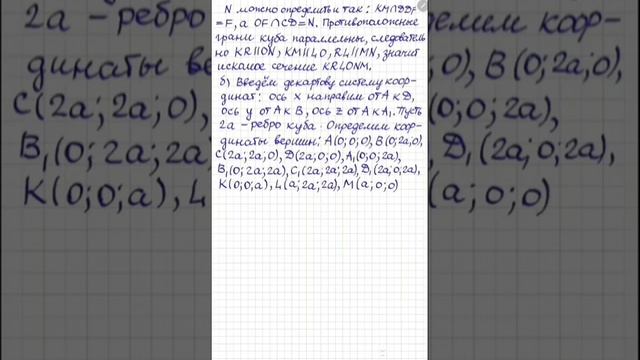 N можно определить и так: KM∩DD₁
=F, а OF∩CD=N. Противоположные
грани куба параллельны, следователь
но KR||ON, KM||LO, RL||MN, значит
искомое сечение KRLONM.
б) Введём декартову систему коор-
динат: ось x направим от A к D,
ось y от A к B, ось z от A к A₁. Пусть
2a – ребро куба. Определим коор-
динаты вершин: A(0;0;0), B(0;2a;0),
C(2a;2a;0), D(2a;0;0), A₁(0;0;2a),
B₁(0;2a;2a), C₁(2a;2a;2a), D₁(2a;0;2a),
K(0;0;a), L(a;2a;2a), M(a;0;0)
2a – ребро
динаты ве
C(2a;2a;0),
B₁(0;2a;2a
K(0;0;a), L
елим коор-
), B(0;2a;0),
(0;0;2a),
, D₁(2a;0;2a),
(a;0;0)